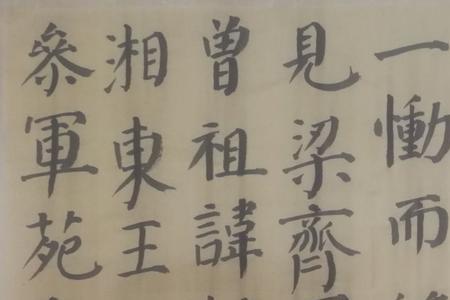 一慟而
見梁齊
曾祖諱
湘東王
參軍苑